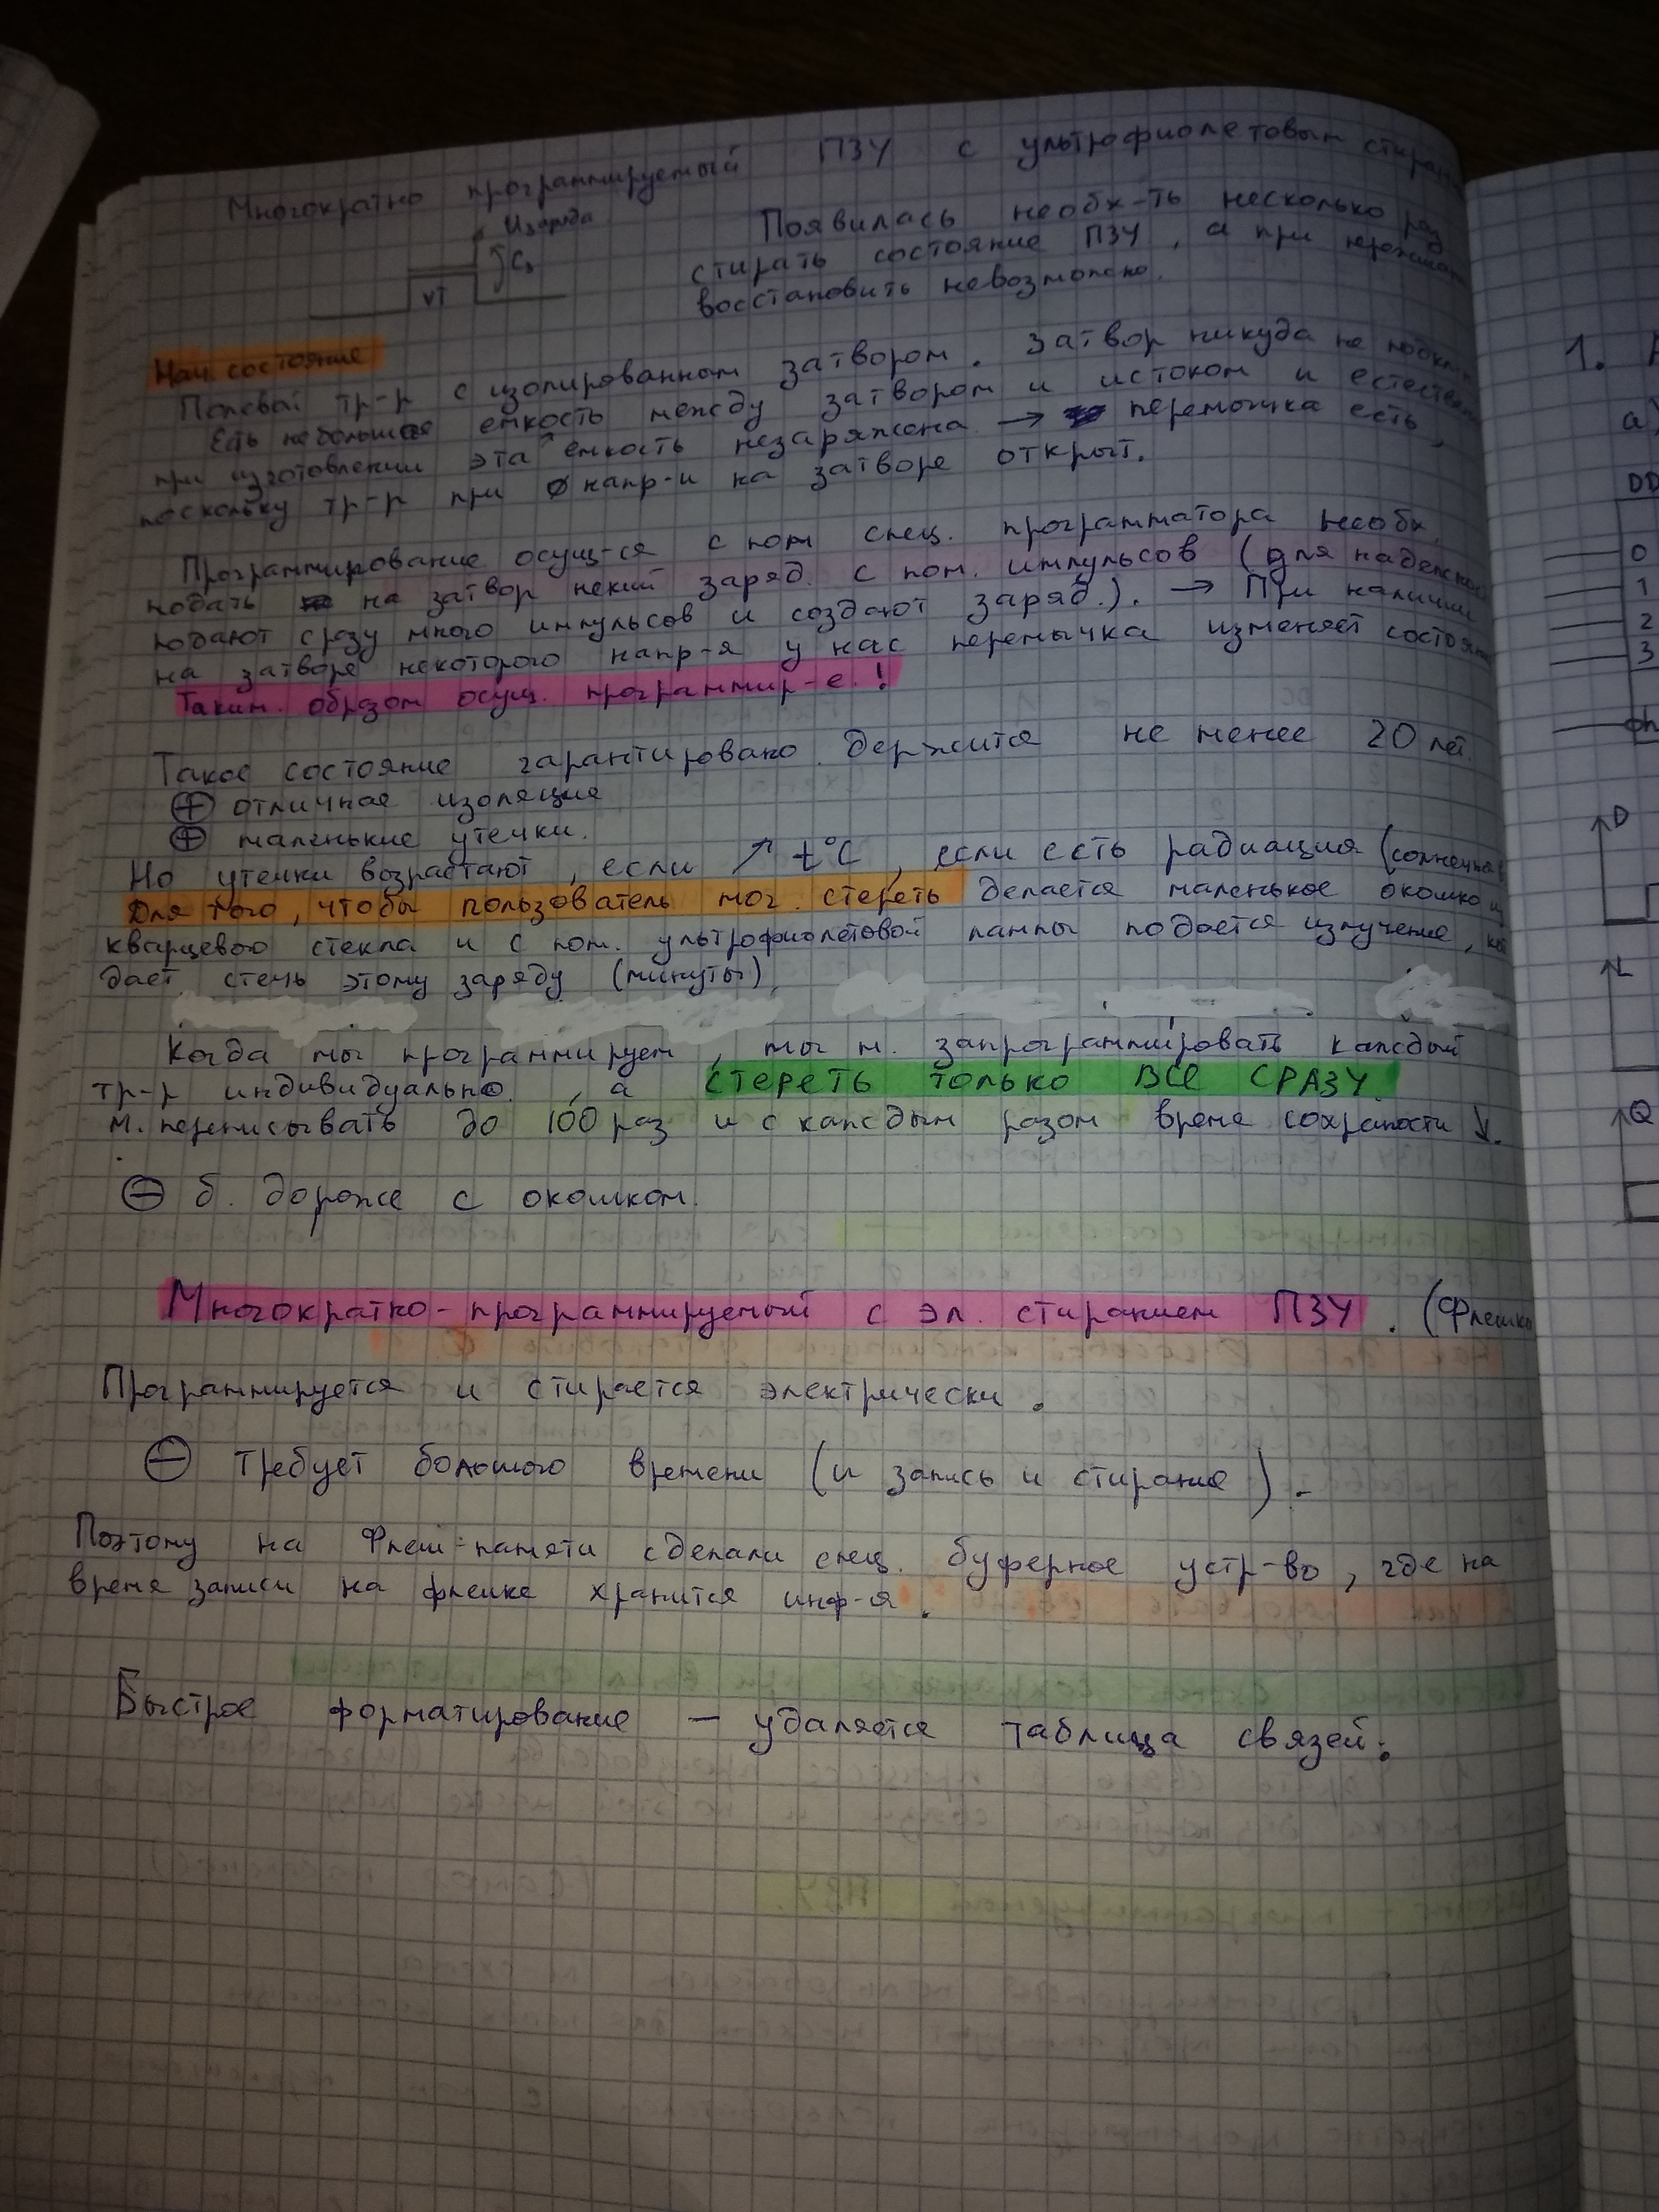 Многократно программируемый ПЗУ с ультрофиолетовым
Uзаряда
Cз
VT
Появилась необх-ть несколько раз
стирать состояние ПЗУ, а при
восстановить невозможно.
Нач. состояние
Полевой тр-р с изолированном затвором. Затвор никуда не
Есть небольшая емкость между затвором и истоком и
при изготовлении эта емкость незаряжена → перемычка есть,
поскольку тр-р при 0 напр-и на затворе открыт.
Программирование осущ-ся с пом спец. программатора необх.
подать на затвор некий заряд. с пом. импульсов (для
подают сразу много импульсов и создают заряд.). → При наличии
на затворе некоторого напр-я у нас перемычка изменяет
Таким. образом осущ. программир-е.!
Такое состояние гарантировано держится не менее 20 лет.
⊕ отличная изоляция
⊕ маленькие утечки.
Но утечки возрастают, если ↗ t°C, если есть радиация (солнечная
Для того, чтобы пользователь мог. стереть делается маленькое окошко из
кварцевого стекла и с пом. ультрофиолетовой лампы подается излучение,
дает стечь этому заряду (минуты),
Когда мы программируем, мы м. запрограммировать каждый
тр-р индивидуально, а СТЕРЕТЬ ТОЛЬКО ВСЕ СРАЗУ.
м. переписывать до 100 раз и с каждым разом время сохраности ↓.
⊖ б. дороже с окошком.
Многократно-программируемый с эл. стиранием ПЗУ. (Флешка
Программируется и стирается электрически.
⊖ требует большого времени (и запись и стирание).
Поэтому на Флеш-памяти сделали спец. буферное устр-во, где на
время записи на флешке хранится инф-я.
Быстрое форматирование – удаляется таблица связей.
1.
а)
DD
0
1
2
3
D
L
Q